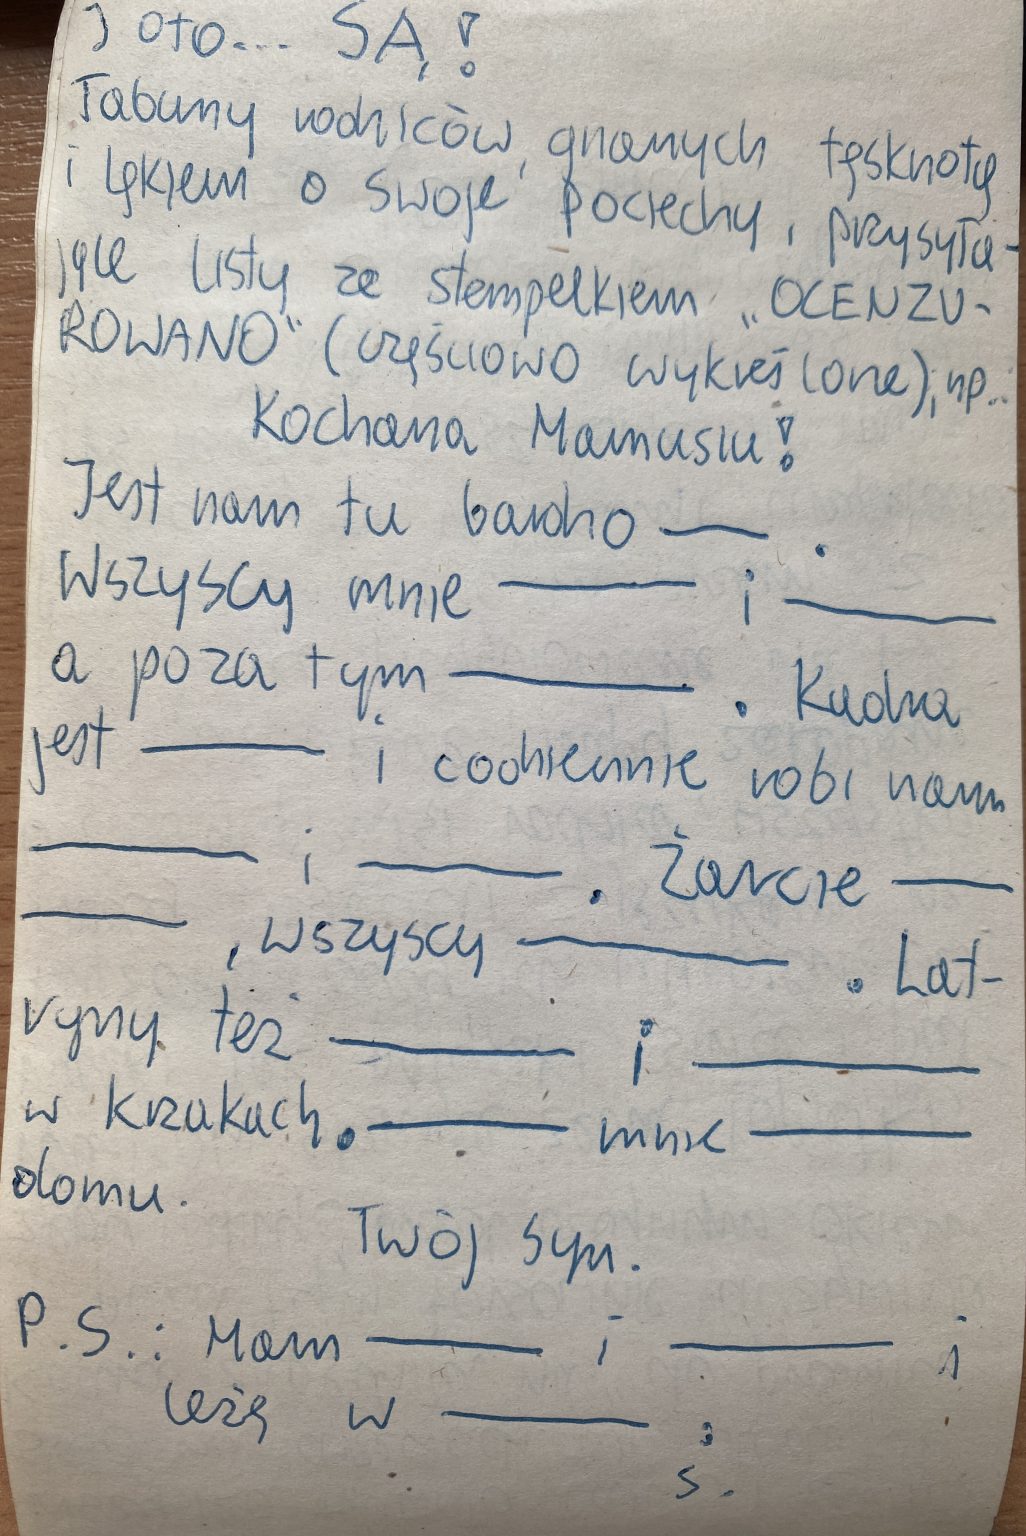 I oto... SĄ!
Tabuny rodziców, gnanych tęsknotą
i lękiem o swoje pociechy, przysyła-
jące listy ze stempelkiem „OCENZU-
ROWANO" (częściowo wykreślone), np.:
Kochana Mamusiu!
Jest nam tu bardzo ___ .
Wszyscy mnie ___ i ___
a poza tym ___ . Kadra
jest ___ i codziennie robi nam
___ i ___ . Żarcie ___
___ , wszyscy ___ . Lat-
ryny też ___ i ___
w krzakach. ___ mnie ___
domu.
Twój syn.
P.S.: Mam ___ i ___ i
leżę w ___ ;
s.